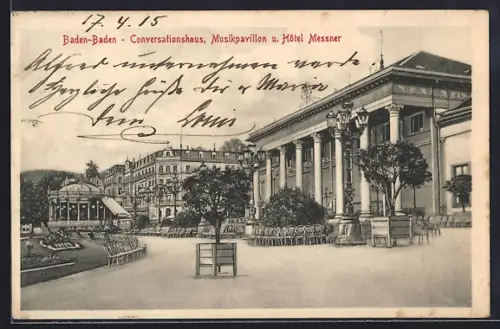 17.4.15
Baden-Baden - Conversationshaus, Musikpavillon u. Hôtel Messner
Alfred unternehmen werde
Herzliche Grüße Dir u Maria
Dein Louis